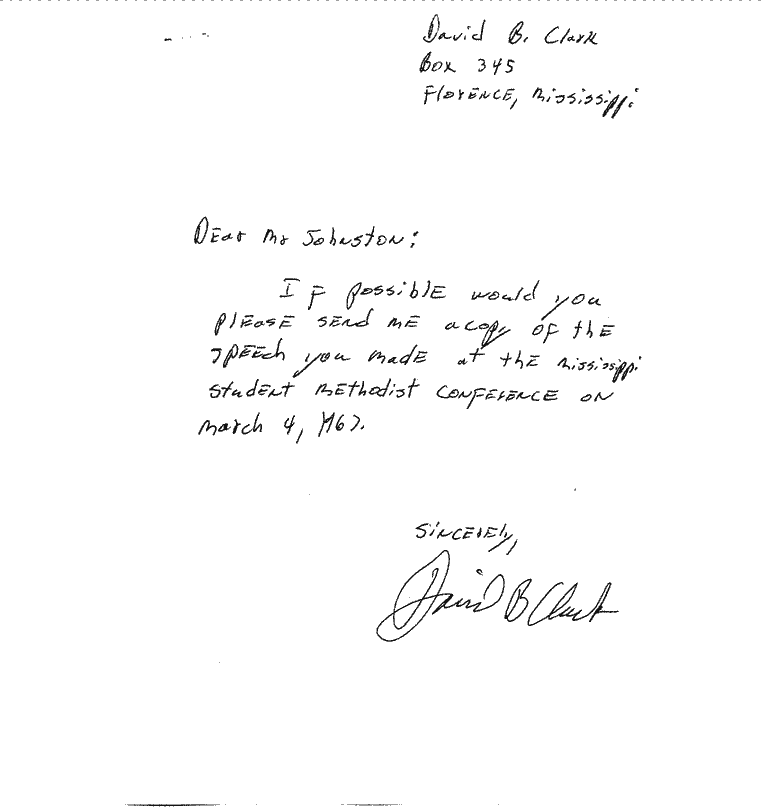 David B. Clark
Box 345
Florence, Mississippi
Dear Mr Johnston:
If possible would you
please send me a copy of the
speech you made at the Mississippi
Student Methodist Conference on
March 4, 1967.
Sincerely,
David B Clark